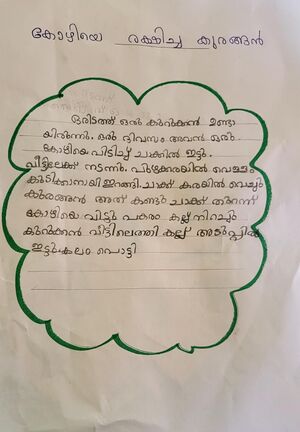 കോഴിയെ രക്ഷിച്ച കുരങ്ങൻ
ഒരിടത്ത് ഒരു കുറുക്കൻ ഉണ്ടാ
യിരുന്നു. ഒരു ദിവസം അവൻ ഒരു
കോഴിയെ പിടിച്ച് ചാക്കിൽ ഇട്ടു.
വീട്ടിലേക്ക് നടന്നു. പുഴക്കരയിൽ വെള്ളം
കുടിക്കാനായി ഇറങ്ങി. ചാക്ക് കരയിൽ വെച്ചു
കുരങ്ങൻ അത് കണ്ടു ചാക്ക് തുറന്ന്
കോഴിയെ വിട്ടു പകരം കല്ല് നിറച്ചു
കുറുക്കൻ വീട്ടിലെത്തി കല്ല് അടുപ്പിൽ
ഇട്ടു.കലം പൊട്ടി